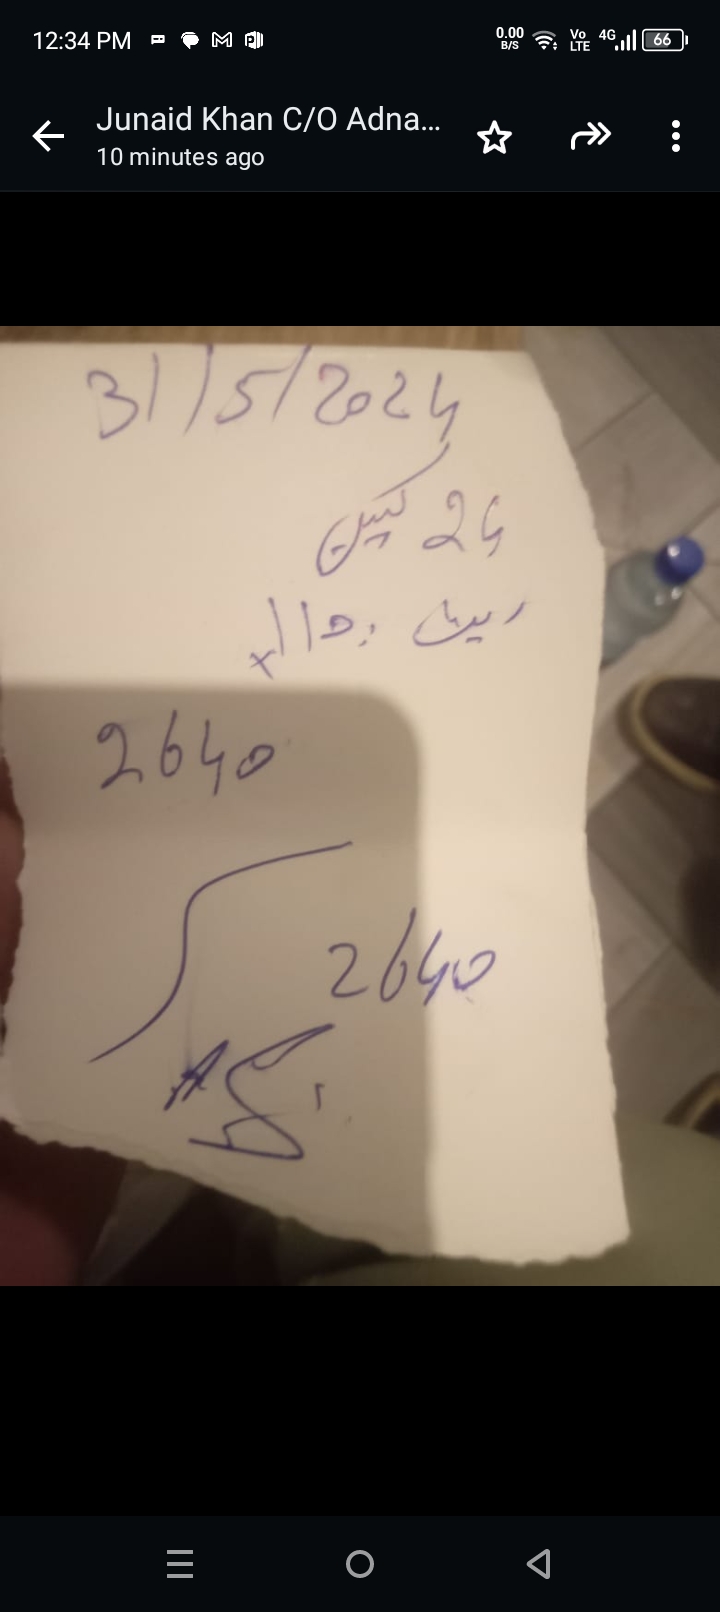 12:34 PM 0.00 B/S Vo LTE 4G 66
Junaid Khan C/O Adna...
10 minutes ago
31/5/2024
24 کیس
ریٹ 110x
2640
2640